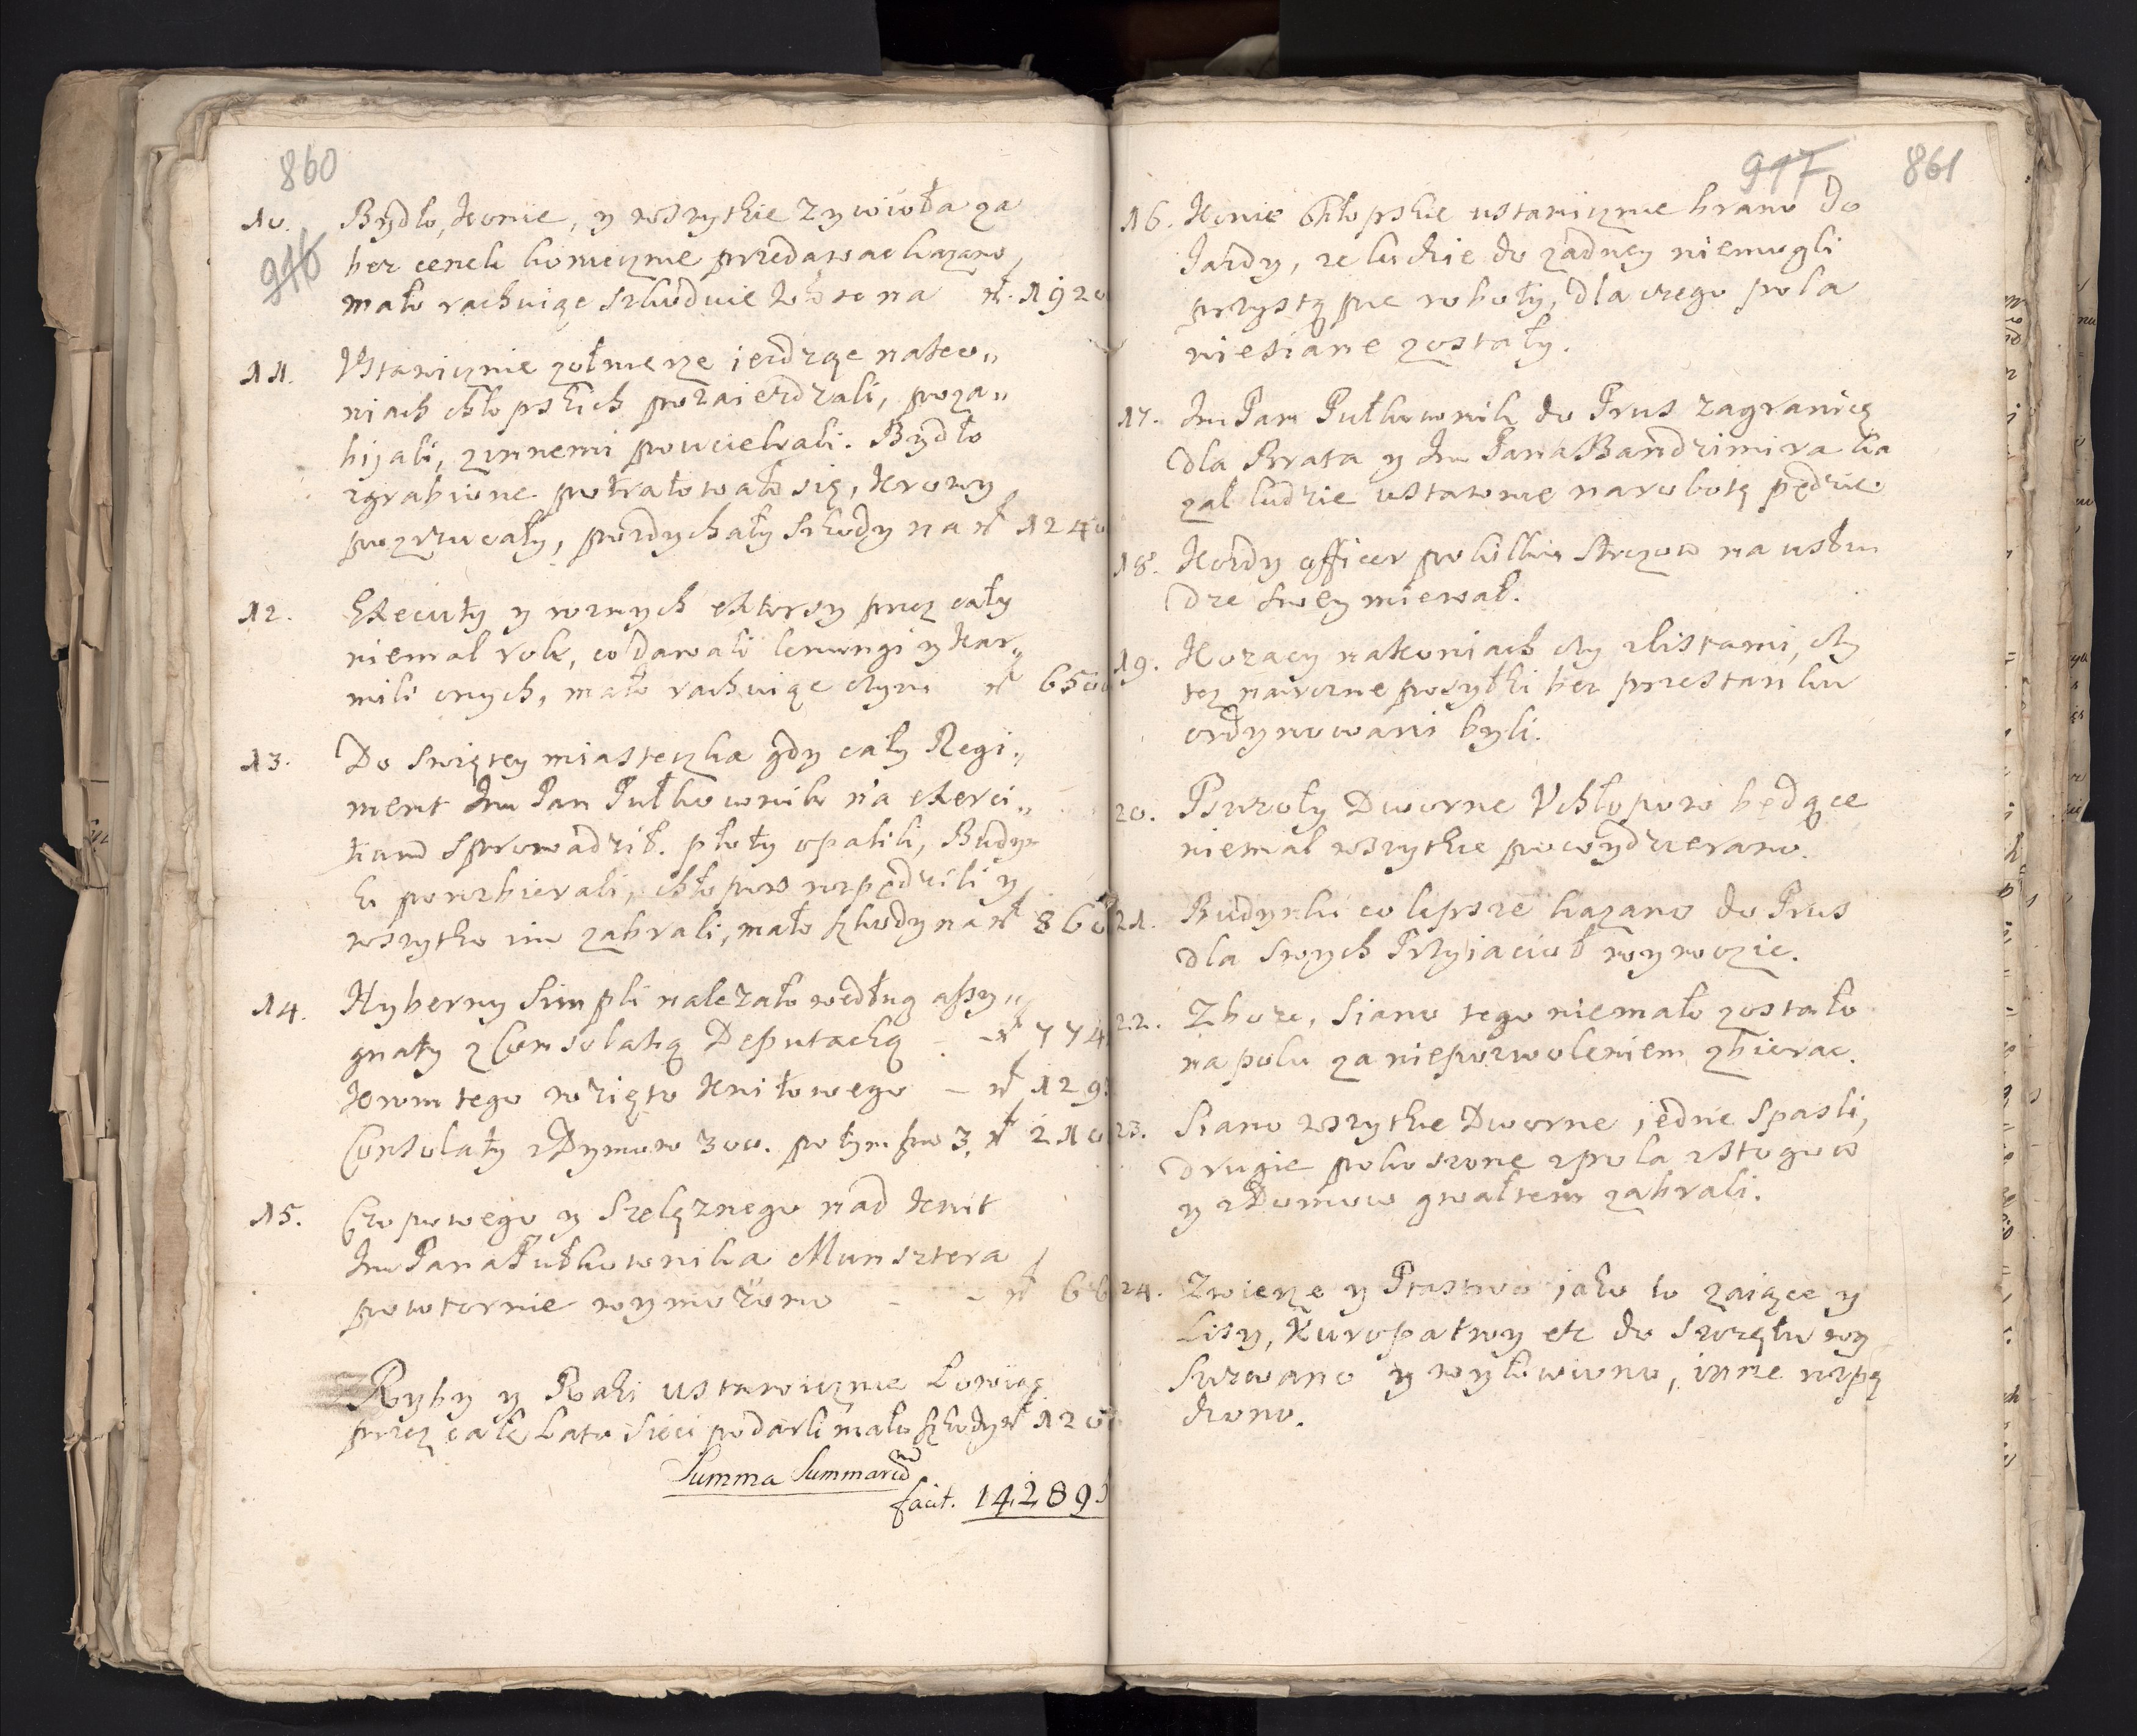 860
10. Bydło, Konie, y wszytkie Zywioła za
916
bez cenek koniecznie przedawac kazano,
mało rachuiąc szkoduie
na zł. 1920
11. Ustawicznie zołnierze ieżdząc na ko„
niach chłopskich pozaieżdzali, poza„
bijali, z innemi pouciekali. Bydło
zgrabione potratowało się, Krowy
pozrzucały, pozdychały szkody na zł 1240
12. Executy y roznych extorsy przez cały
niemal rok, co dawali lenungi y Kar„
mili onych, mało rachuiąc czyni zł 650
13. Do Swiętey miasteczka gdy cały Regi„
ment Im Pan Pułkownik na exerci„
tium sprowadził. płoty opalili, Budyn
ki porozbierali, chłopow rozpędzili y
wszytko im zabrali, mało szkody na zł 860
14. Hyberny Simpli należało według assy„
gnaty z Consolatią Deputackią - zł 774
Krom tego wzięto Kwitowego - zł 129
Consolaty z Dymow 300. po tym fwo 3. zł 210
15. Czopowego y Szelężnego nad Kwit
Im Pana Pułkownika Munsztera
powtornie wymożono - - zł 66
Ryby y Raki ustawicznie Łowiąc
przez całe Lato sieci podarli mało szkody zł 120
Summa Summarum
facit. 14289
917 861
16. Konie chłopskie ustawicznie brano do
Jazdy, ze ludzie do żadney niemogli
przystąpic roboty, dla czego pola
niesiane zostały.
17. Im Pan Pułkownik do Prus zagranicę
dla Brata y Im Pana Bandzimira ka
zał ludzie ustawnie na robotę pędzic
18. Kożdy officer po kilku Strozow na usłu
dze swey miewał.
19. Kozacy na koniach czy z listami, czy
tez na rozne posyłki bez przestanku
ordynowani byli.
20. Pszczoły Dworne U chłopow będące
niemal wszytkie powydzierano.
21. Budynki co lepsze kazano do Prus
dla swych Przyiacioł wywozic.
22. Zboze, Siano tego niemało zostało
na polu za niepozwoleniem zbierac.
23. Siano wszytkie Dworne, jedne Spasli,
drugie pokoszone z pola z Stogow
y z Domow gwałtem zabrali.
24. Zwierze y Ptastwo jako to zaiące y
Lisy, Kuropatwy etc do Szczętu wy
szczwano y wyłowiono, inne rozpę
dzono.